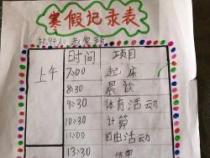 寒假记录表
时间 项目
上午 7:00 起床
8:30 晨饮
9:30 体育活动
10:30 计算
11:00 自由活动
13:30